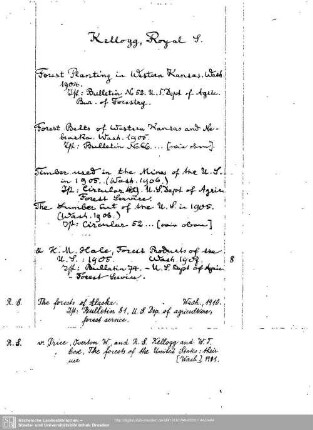 Kellogg, Royal S.
Forest Planting in Western Kansas. Wash.
1904.
Bulletin N 52. U.S. Dept of Agric.
Bur. of Forestry.
Forest Belts of Western Kansas and Ne-
braska. Wash. 1905.
Bulletin No 66 ... [
Timber used in the Mines of the U.S.
in 1905. (Wash. 1906.)
Circular 49. U.S. Dept of Agric.
Forest Service.
The Lumber Cut of the U.S. in 1905.
(Wash. 1906.)
Circular 52 ... [
& H. M. Hale, Forest Products of the
U.S. 1905. Wash. 1908. 8
Bulletin 74. - U.S. Dept of Agric.
Forest Service.
R. S. The forests of Alaska. Wash., 1910.
Bulletin 81, U.S. Dep. of agriculture,
forest service.
R. S. v. Price, Overton W. and R. S. Kellogg and W. T.
Cox, The forests of the United States: their
use [Wash.] 1909.